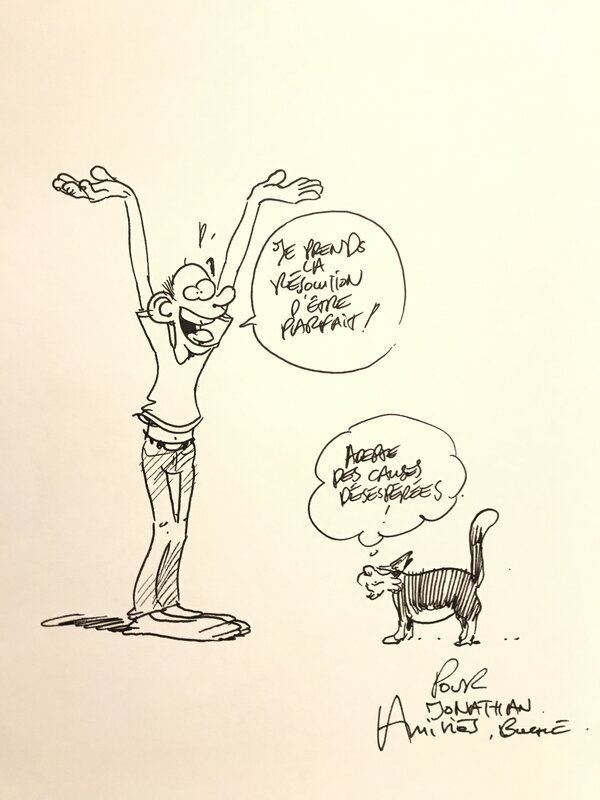 JE PRENDS
LA
RÉSOLUTION
D'ÊTRE
PARFAIT !
ADEPTE
DES CAUSES
DÉSESPÉRÉES
!
POUR
JONATHAN
Amitiés,